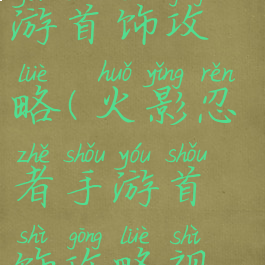 游首饰攻
lüè huǒ yǐng rěn
略(火影忍
zhě shǒu yóu shǒu
者手游首
shì gōng lüè shì
饰攻略视